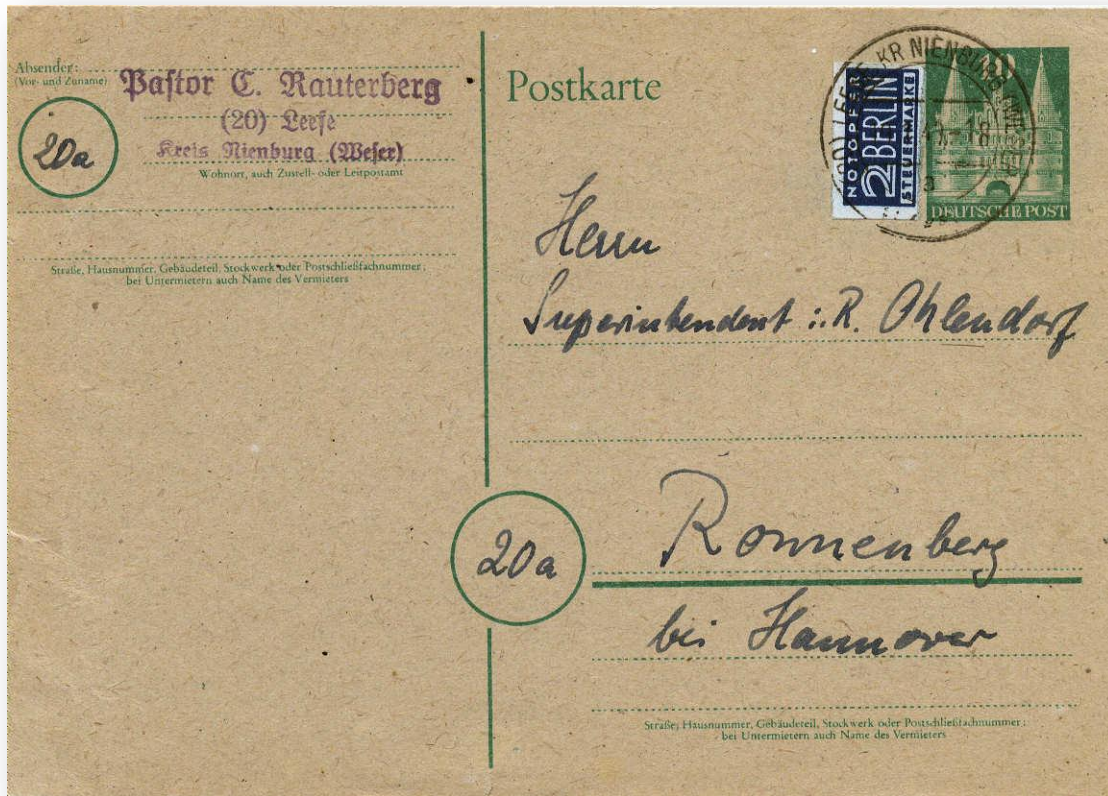 Absender:
(Vor- und Zuname)
Pastor C. Rauterberg
(20) Leese
Kreis Nienburg (Weser)
20a
Wohnort, auch Zustell- oder Leitpostamt
Straße, Hausnummer, Gebäudeteil, Stockwerk oder Postschließfachnummer;
bei Untermietern auch Name des Vermieters
Postkarte
NOTOPFER
2 BERLIN
STEUERMARKE
KR NIENBURG
DEUTSCHE POST
Herrn
Superintendent i. R. Ohlendorf
20a
Ronnenberg
bei Hannover
Straße, Hausnummer, Gebäudeteil, Stockwerk oder Postschließfachnummer;
bei Untermietern auch Name des Vermieters